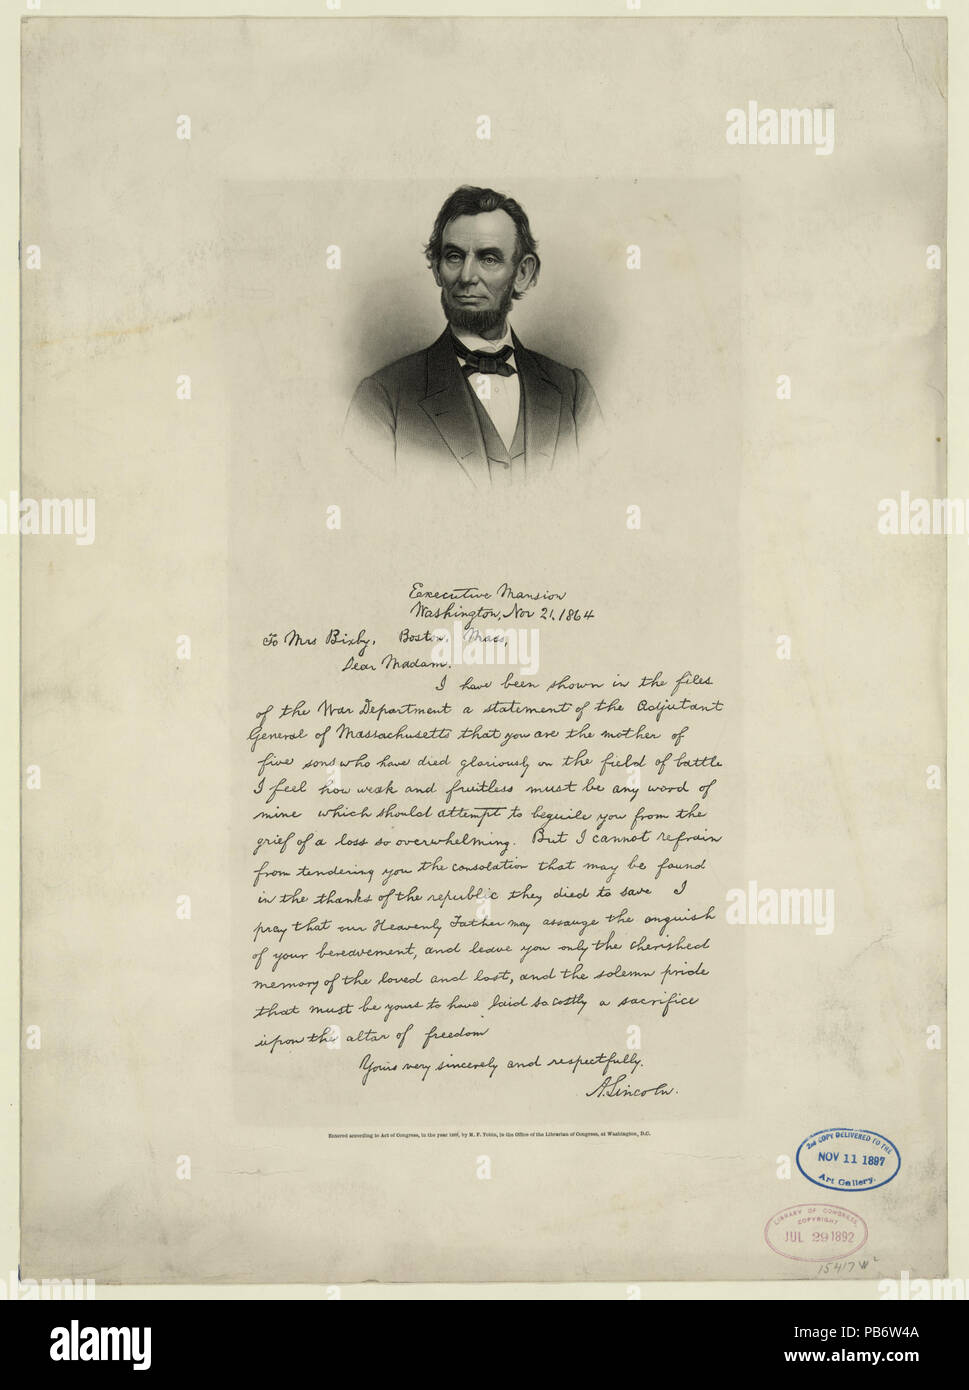 Executive Mansion
Washington, Nov 21, 1864
To Mrs Bixby, Boston, Mass,
Dear Madam.
I have been shown in the files
of the War Department a statement of the Adjutant
General of Massachusetts that you are the mother of
five sons who have died gloriously on the field of battle
I feel how weak and fruitless must be any word of
mine which should attempt to beguile you from the
grief of a loss so overwhelming. But I cannot refrain
from tendering you the consolation that may be found
in the thanks of the republic they died to save I
pray that our Heavenly Father may assauge the anguish
of your bereavement, and leave you only the cherished
memory of the loved and lost, and the solemn pride
that must be yours to have laid so costly a sacrifice
upon the altar of freedom
Yours very sincerely and respectfully.
A. Lincoln.
Entered according to Act of Congress, in the year by M. F. Tobin, in the Office of the Librarian of Congress, at Washington, D.C.
2nd COPY DELIVERED TO THE
NOV 11 1897
Art Gallery.
LIBRARY OF CONGRESS,
COPYRIGHT
JUL 29 1892
alamy
a
alamy stock photo
PB6W4A
www.alamy.com